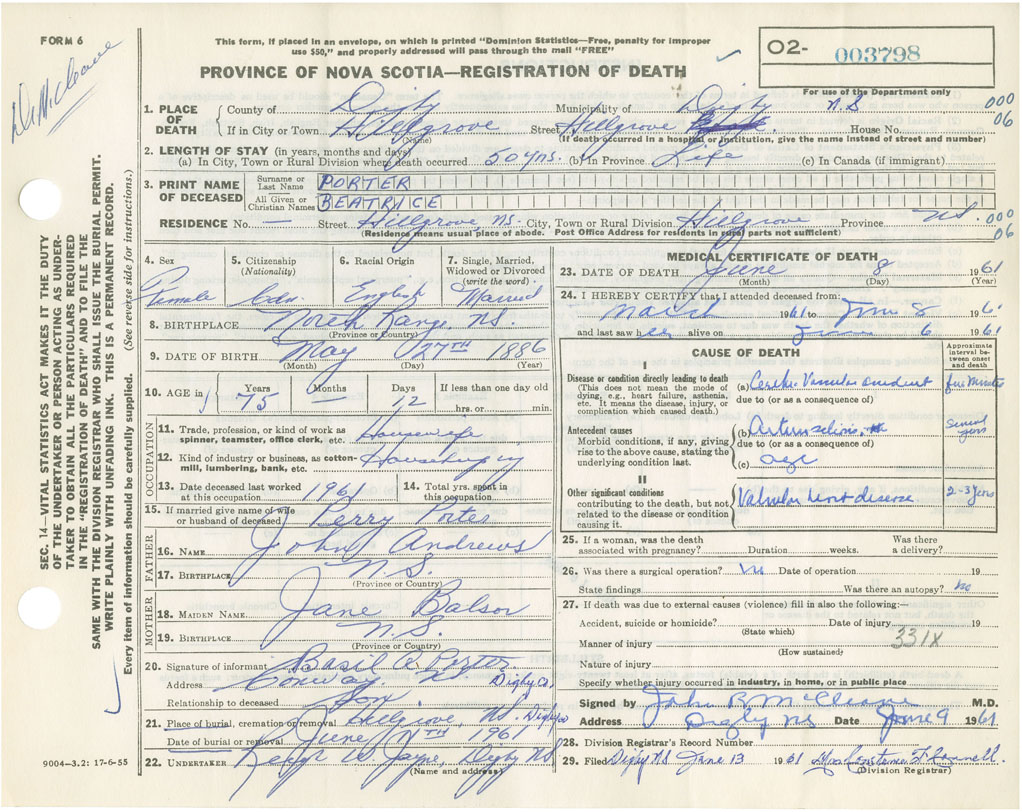 FORM 6
Dr. McCleave
This form, if placed in an envelope, on which is printed "Dominion Statistics—Free, penalty for improper
use $50," and properly addressed will pass through the mail "FREE"
PROVINCE OF NOVA SCOTIA—REGISTRATION OF DEATH
02- 003798
For use of the Department only
1. PLACE OF DEATH County of Digby Municipality of Digby N.S
If in City or Town Hillgrove Street Hillgrove House No.
(Name) (If death occurred in a hospital or institution, give the name instead of street and number)
000
06
2. LENGTH OF STAY (in years, months and days)
(a) In City, Town or Rural Division where death occurred 50 yrs. (b) In Province Life (c) In Canada (if immigrant)
3. PRINT NAME OF DECEASED Surname or Last Name PORTER
All Given or Christian Names BEATRICE
RESIDENCE No. — Street Hillgrove NS. City, Town or Rural Division Hillgrove Province NS.
(Residence means usual place of abode. Post Office Address for residents in rural parts not sufficient)
000
06
4. Sex Female
5. Citizenship (Nationality) Cdn.
6. Racial Origin English
7. Single, Married, Widowed or Divorced (write the word.) Married
8. BIRTHPLACE North Range, NS.
(Province or Country)
9. DATE OF BIRTH May 27TH 1886
(Month) (Day) (Year)
10. AGE in Years 75 Months — Days 12 If less than one day old
hrs. or min.
OCCUPATION
11. Trade, profession, or kind of work as spinner, teamster, office clerk, etc. Housewife
12. Kind of industry or business, as cotton-mill, lumbering, bank, etc. Housekeeping
13. Date deceased last worked at this occupation 1961 14. Total yrs. spent in this occupation
15. If married give name of wife or husband of deceased Perry Porter
FATHER
16. NAME John Andrews
17. BIRTHPLACE N.S.
(Province or Country)
MOTHER
18. MAIDEN NAME Jane Balsor
19. BIRTHPLACE N.S.
(Province or Country)
20. Signature of informant Basil A Porter
Address Conway, NS Digby Co,
Relationship to deceased Son
21. Place of burial, cremation or removal Hillgrove, NS. Digby Co
Date of burial or removal June 11TH 1961
22. UNDERTAKER W. Jayne, Digby NS
(Name and address)
MEDICAL CERTIFICATE OF DEATH
23. DATE OF DEATH June 8 1961
(Month) (Day) (Year)
24. I HEREBY CERTIFY that I attended deceased from:
March 1961 to June 8 196
and last saw her alive on June 6 1961
CAUSE OF DEATH
Approximate interval between onset and death
I
Disease or condition directly leading to death
(This does not mean the mode of dying, e.g., heart failure, asthenia, etc. It means the disease, injury, or complication which caused death.)
(a) Cerebro Vascular accident five minutes
due to (or as a consequence of)
Antecedent causes
Morbid conditions, if any, giving rise to the above cause, stating the underlying condition last.
(b) Arteriosclerosis, several years
due to (or as a consequence of)
(c) age
II
Other significant conditions
contributing to the death, but not related to the disease or condition causing it.
Valvular heart disease 2-3 years
25. If a woman, was the death associated with pregnancy? Duration weeks. Was there a delivery?
26. Was there a surgical operation? No Date of operation 19
State findings Was there an autopsy? No
27. If death was due to external causes (violence) fill in also the following:—
Accident, suicide or homicide? Date of injury 19
(State which)
331X
Manner of injury
(How sustained)
Nature of injury
Specify whether injury occurred in industry, in home, or in public place
Signed by John R McCleave M.D.
Address Digby NS Date June 9 1961
28. Division Registrar's Record Number
29. Filed Digby NS June 13 1961 Mrs. Constance
(Division Registrar)
SEC. 14—VITAL STATISTICS ACT MAKES IT THE DUTY
OF THE UNDERTAKER OR PERSON ACTING AS UNDER-
TAKER TO OBTAIN ALL THE PARTICULARS REQUIRED
IN THE "REGISTRATION OF DEATH" AND TO FILE THE
SAME WITH THE DIVISION REGISTRAR WHO SHALL ISSUE THE BURIAL PERMIT.
WRITE PLAINLY WITH UNFADING INK. THIS IS A PERMANENT RECORD.
Every item of information should be carefully supplied. (See reverse side for instructions.)
9004—3.2: 17-6-55